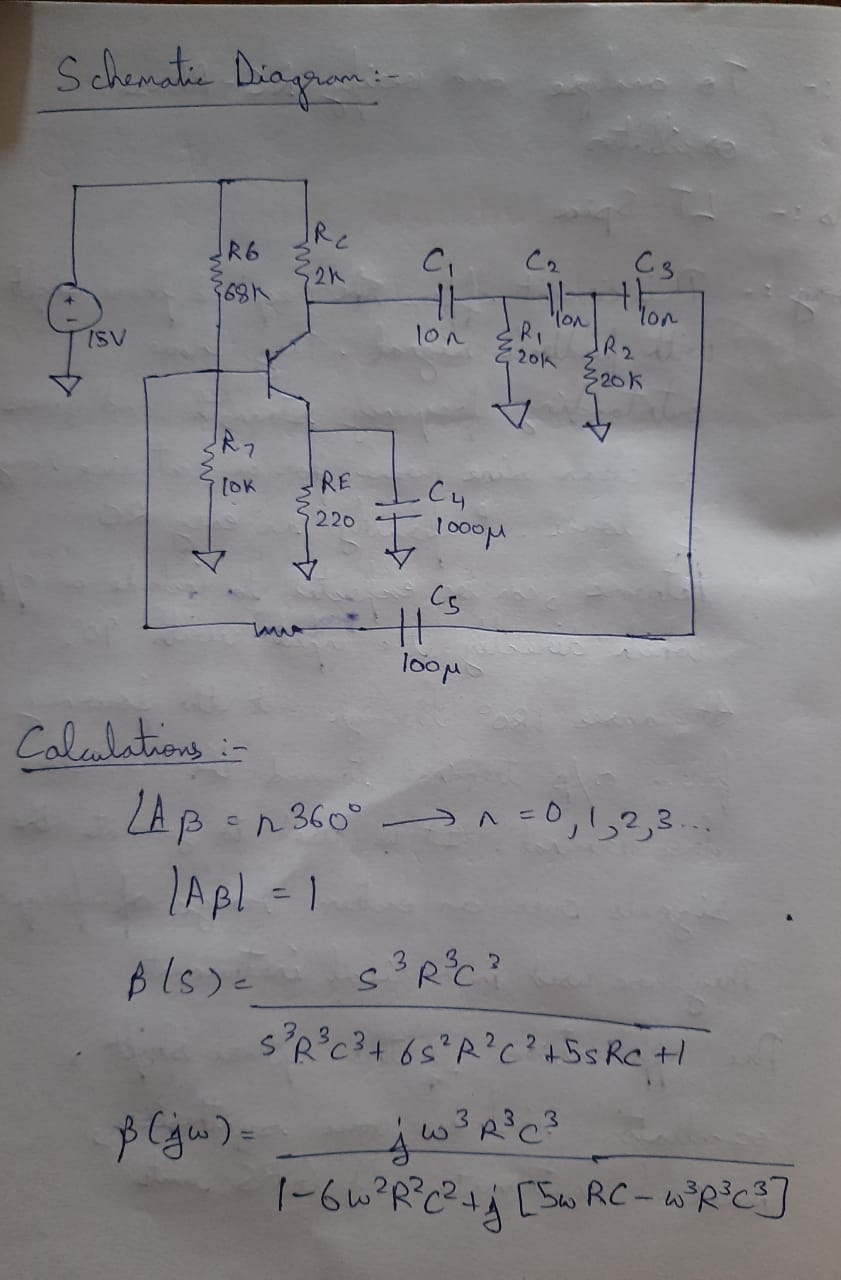 Schematic Diagram :-
R6
68K
Rc
2K
C1
10n
C2
10n
C3
10n
+
-
15V
R1
20K
R2
20K
R7
10K
RE
220
C4
1000μ
C5
100μ
Calculations :-
∠Aβ = n360° → n = 0, 1, 2, 3...
|Aβ| = 1
β(s) = s³R³C³
s³R³C³ + 6s²R²C² + 5sRC + 1
β(jω) = jω³R³C³
1-6ω²R²C² + j[5ωRC - ω³R³C³]